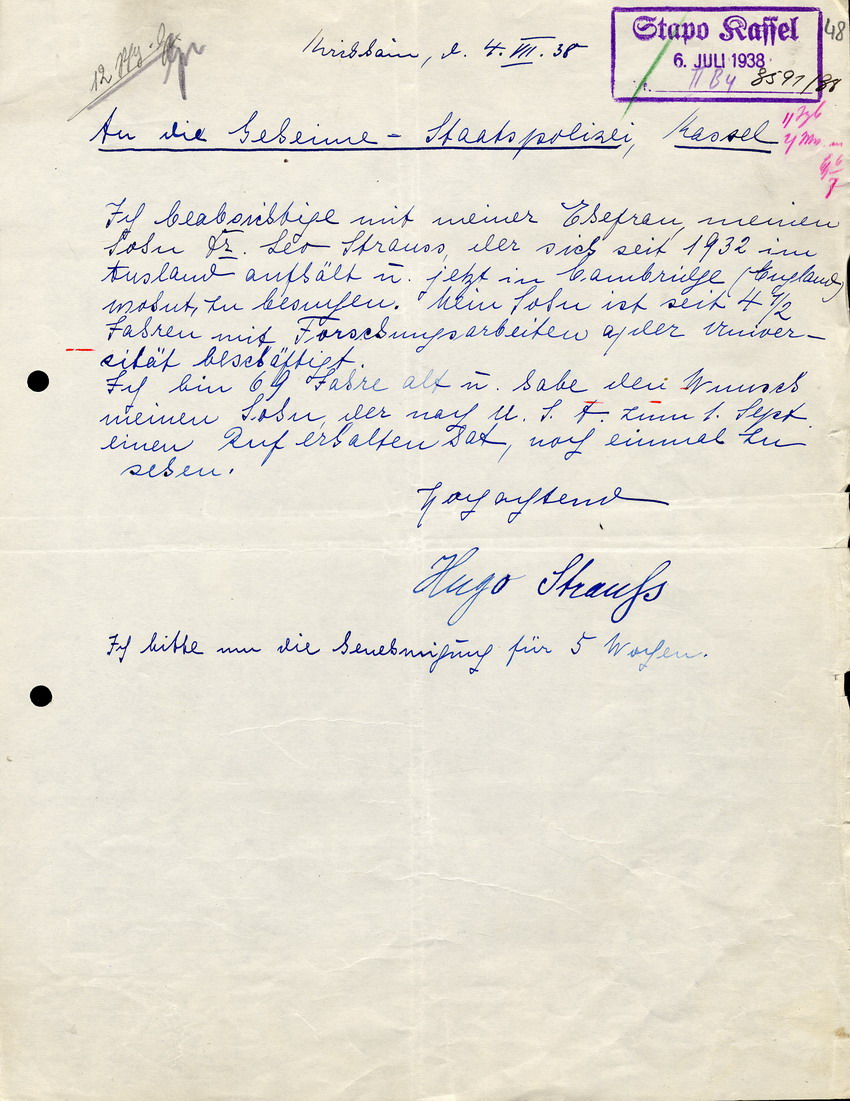 48
Stapo Kassel
6. JULI 1938
II B4 8591/38
Kirchhain, d. 4. VII. 38
An die Geheime - Staatspolizei, Kassel
Ich beabsichtige mit meiner Ehefrau, meinen
Sohn Dr. Leo Strauss, der sich seit 1932 im
Ausland aufhält u. jetzt in Cambridge (England)
wohnt, zu besuchen. Mein Sohn ist seit 4 1/2
Jahren mit Forschungsarbeiten a/der Univer-
sität beschäftigt.
Ich bin 69 Jahre alt u. habe den Wunsch
meinen Sohn, der nach U. S. A. zum 1. Sept.
einen Ruf erhalten hat, noch einmal zu
sehen.
Hochachtend
Hugo Strauss
Ich bitte um die Genehmigung für 5 Wochen.